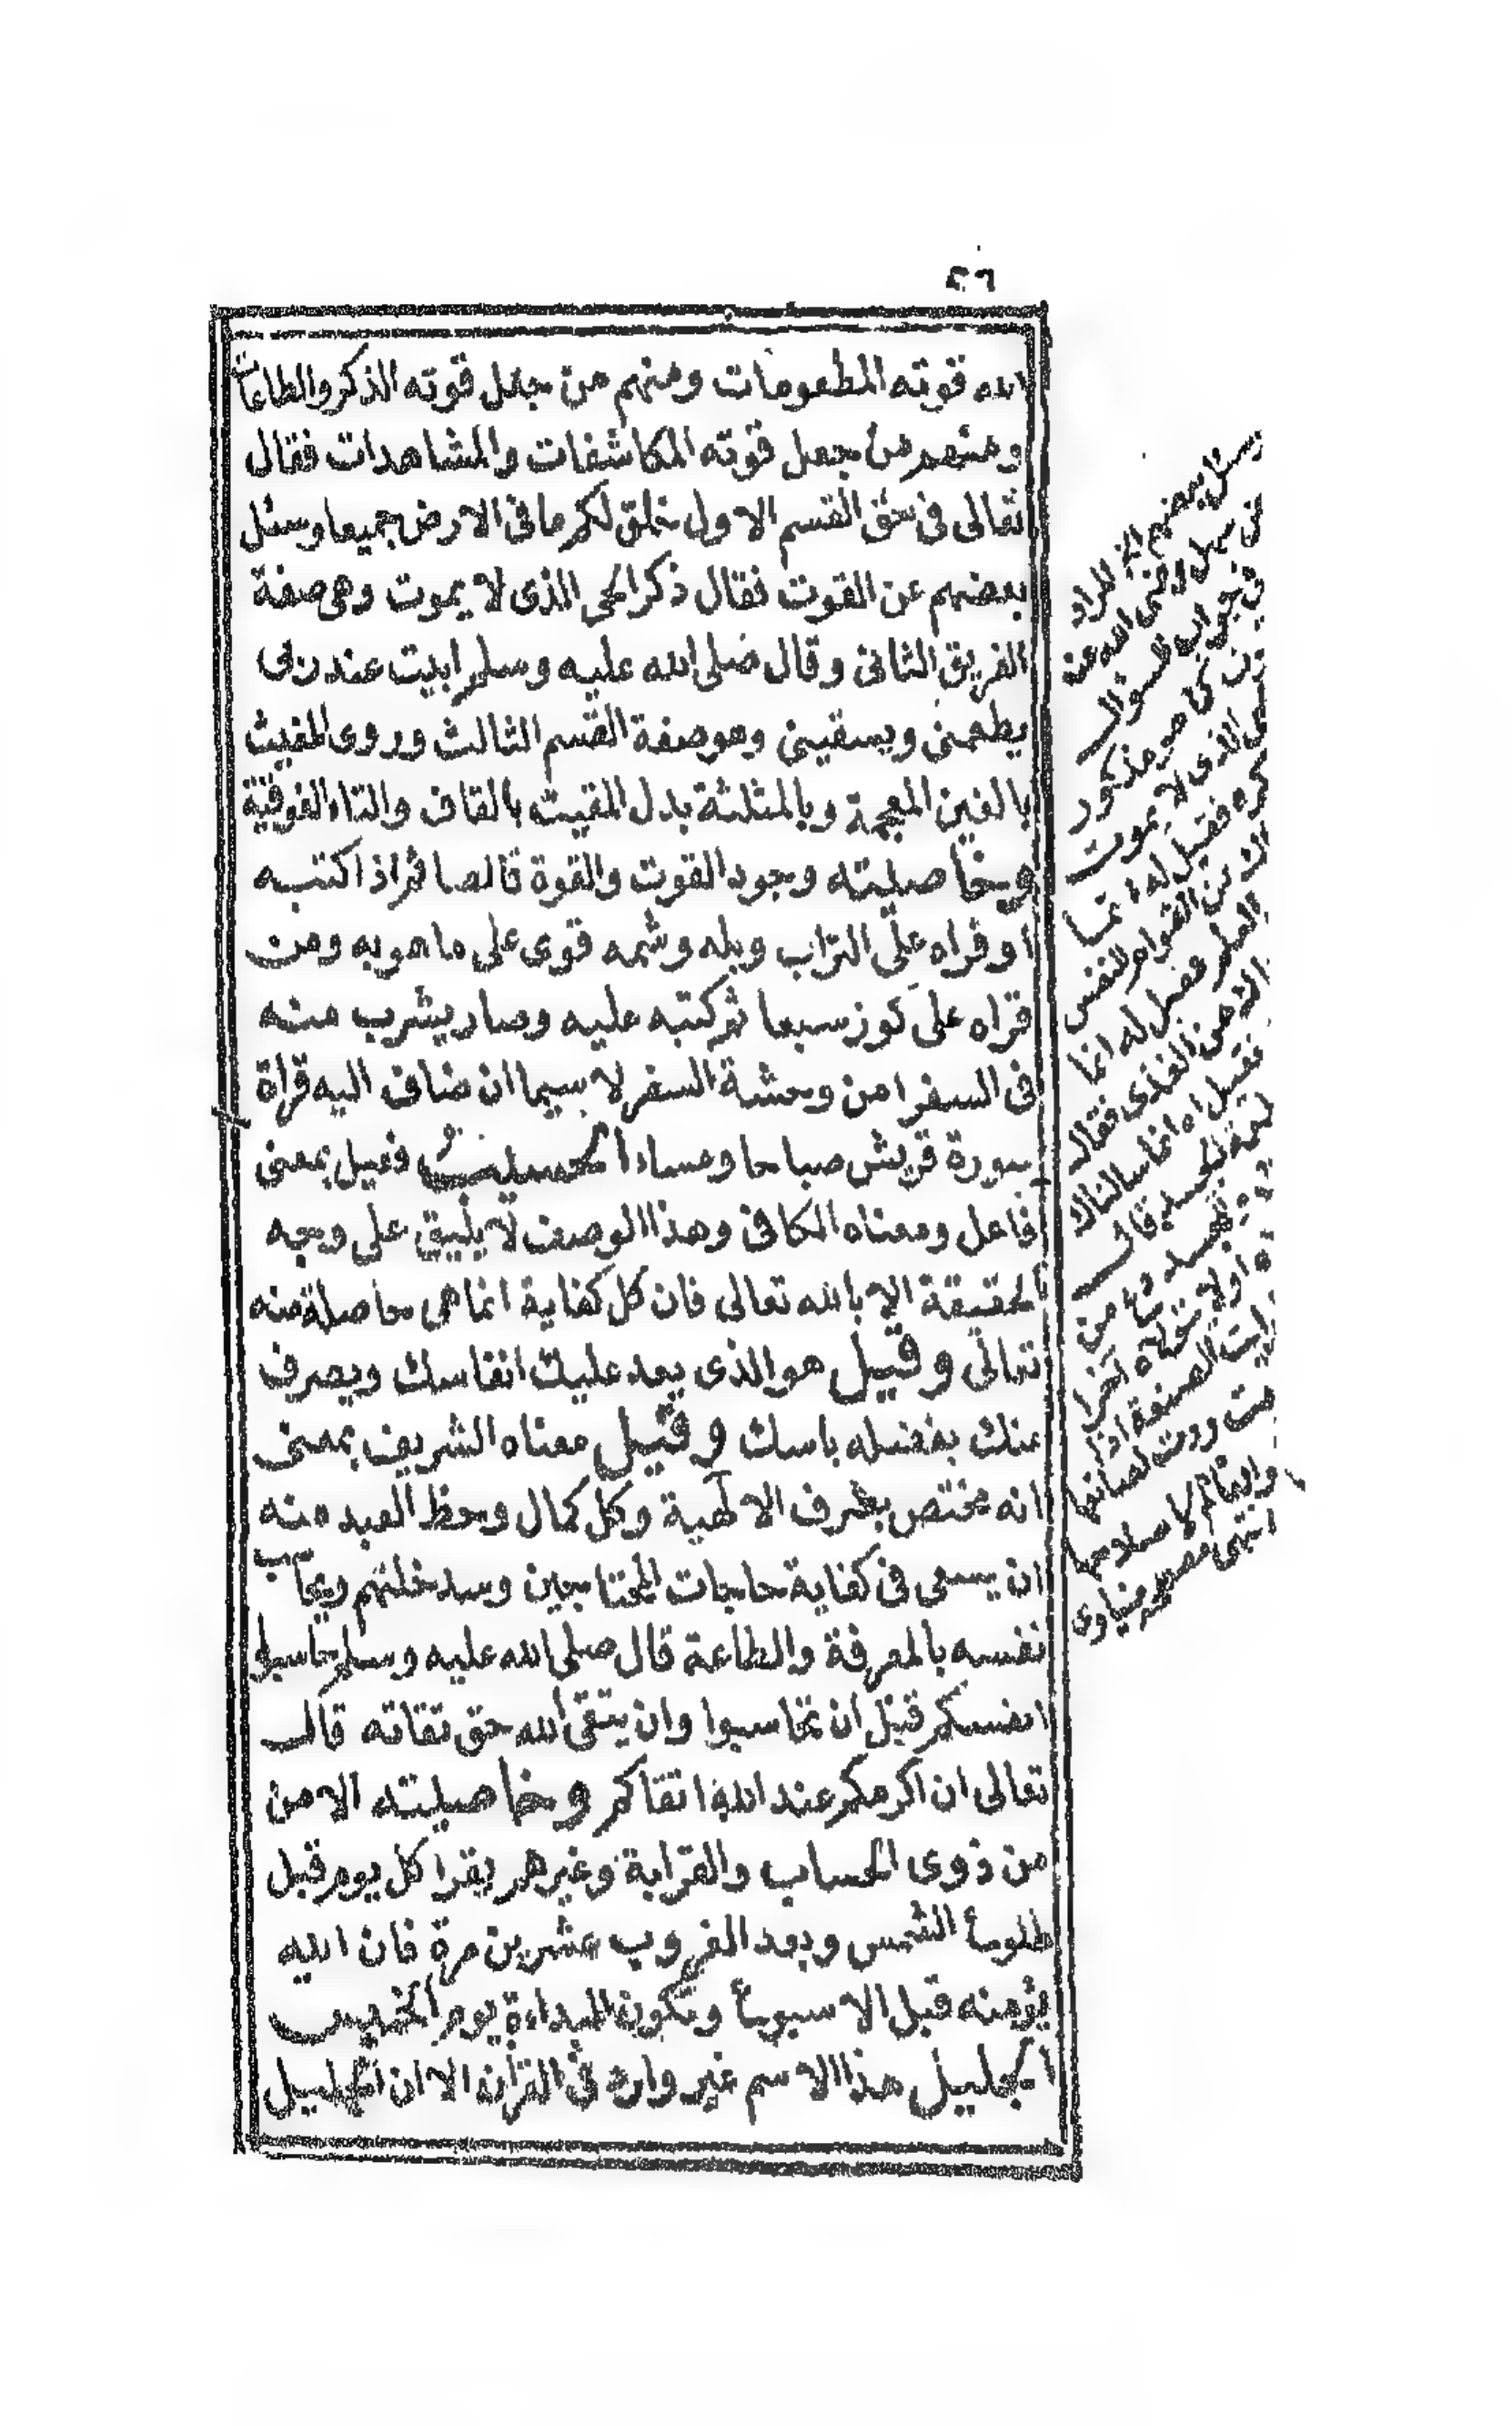 ٢٦
الله قوته المطعومات ومنهم من جعل قوته الذكر والطاعات
ومنهم من جعل قوته المكاشفات والمشاهدات فقال
تعالى فى حق القسم الاول خلق لكم ما فى الارض جميعا وسئل
بعضهم عن القوت فقال ذكر الحى الذى لا يموت وهى صفة
الفريق الثانى وقال صلى الله عليه وسلم ابيت عند ربى
يطعمنى ويسقينى وهو صفة القسم الثالث وروى المغيث
بالغين المعجمة وبالمثلثة بدل المقيت بالقاف والتاء الفوقية
وخاصيته وجود القوت والقوة قالصا ثم اذا كتبه
او قراه على التراب وبله وشمه قوى على ما هو به ومن
قراه على كوز سبعا ثم كتبه عليه وصار يشرب منه
فى السفر امن وحشة السفر لا سيما ان ضاف اليه قراة
سورة قريش صباحا ومساء الحسيب فعيل بمعنى
فاعل ومعناه الكافى وهذا الوصف لا يليق على وجه
الحقيقة الا بالله تعالى فان كل كفاية انما هى حاصلة منه
تعالى وقيل هو الذى يعد عليك انفاسك ويصرف
عنك بفضله باسك وقيل معناه الشريف بمعنى
انه مختص بشرف الالهية وكل كمال وحظ العبد منه
ان يسعى فى كفاية حاجات المحتاجين وسد خلتهم ويحاسب
نفسه بالمعرفة والطاعة قال صلى الله عليه وسلم حاسبوا
انفسكم قبل ان تحاسبوا وان يتقى الله حق تقاته قال
تعالى ان اكرمكم عند الله اتقاكم وخاصيته الامن
من ذوى الحساب والقرابة وغيرهم يقرا كل يوم قبل
طلوع الشمس وبعد الغروب عشرين مرة فان الله
يؤمنه قبل الاسبوع وتكون البداءة يوم الخميس
الجليل هذا الاسم غير وارد فى القرآن الا ان الجليل
وسئل بعضهم الخ المراد
سهل رضى الله عن
فى جواب السؤال
هو مذكور
الذى لا يموت
فقيل له
القوام للنفس
العلم فقيل له انما
من الغذى فقال
فقيل له انما سالناك
للجسد قال
اولا يتولاه اخرا
الصنعة اذا
ردت لصانعها
اصلاحها
انتهى